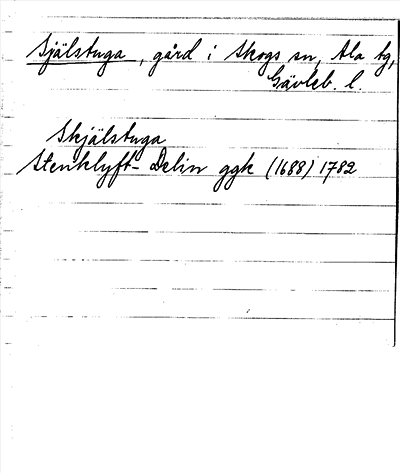 Själstuga, gård i Skogs sn, Ala tg,
Gävleb. l.
Skjälstuga
Stenklyft-Delin ggk (1688) 1782